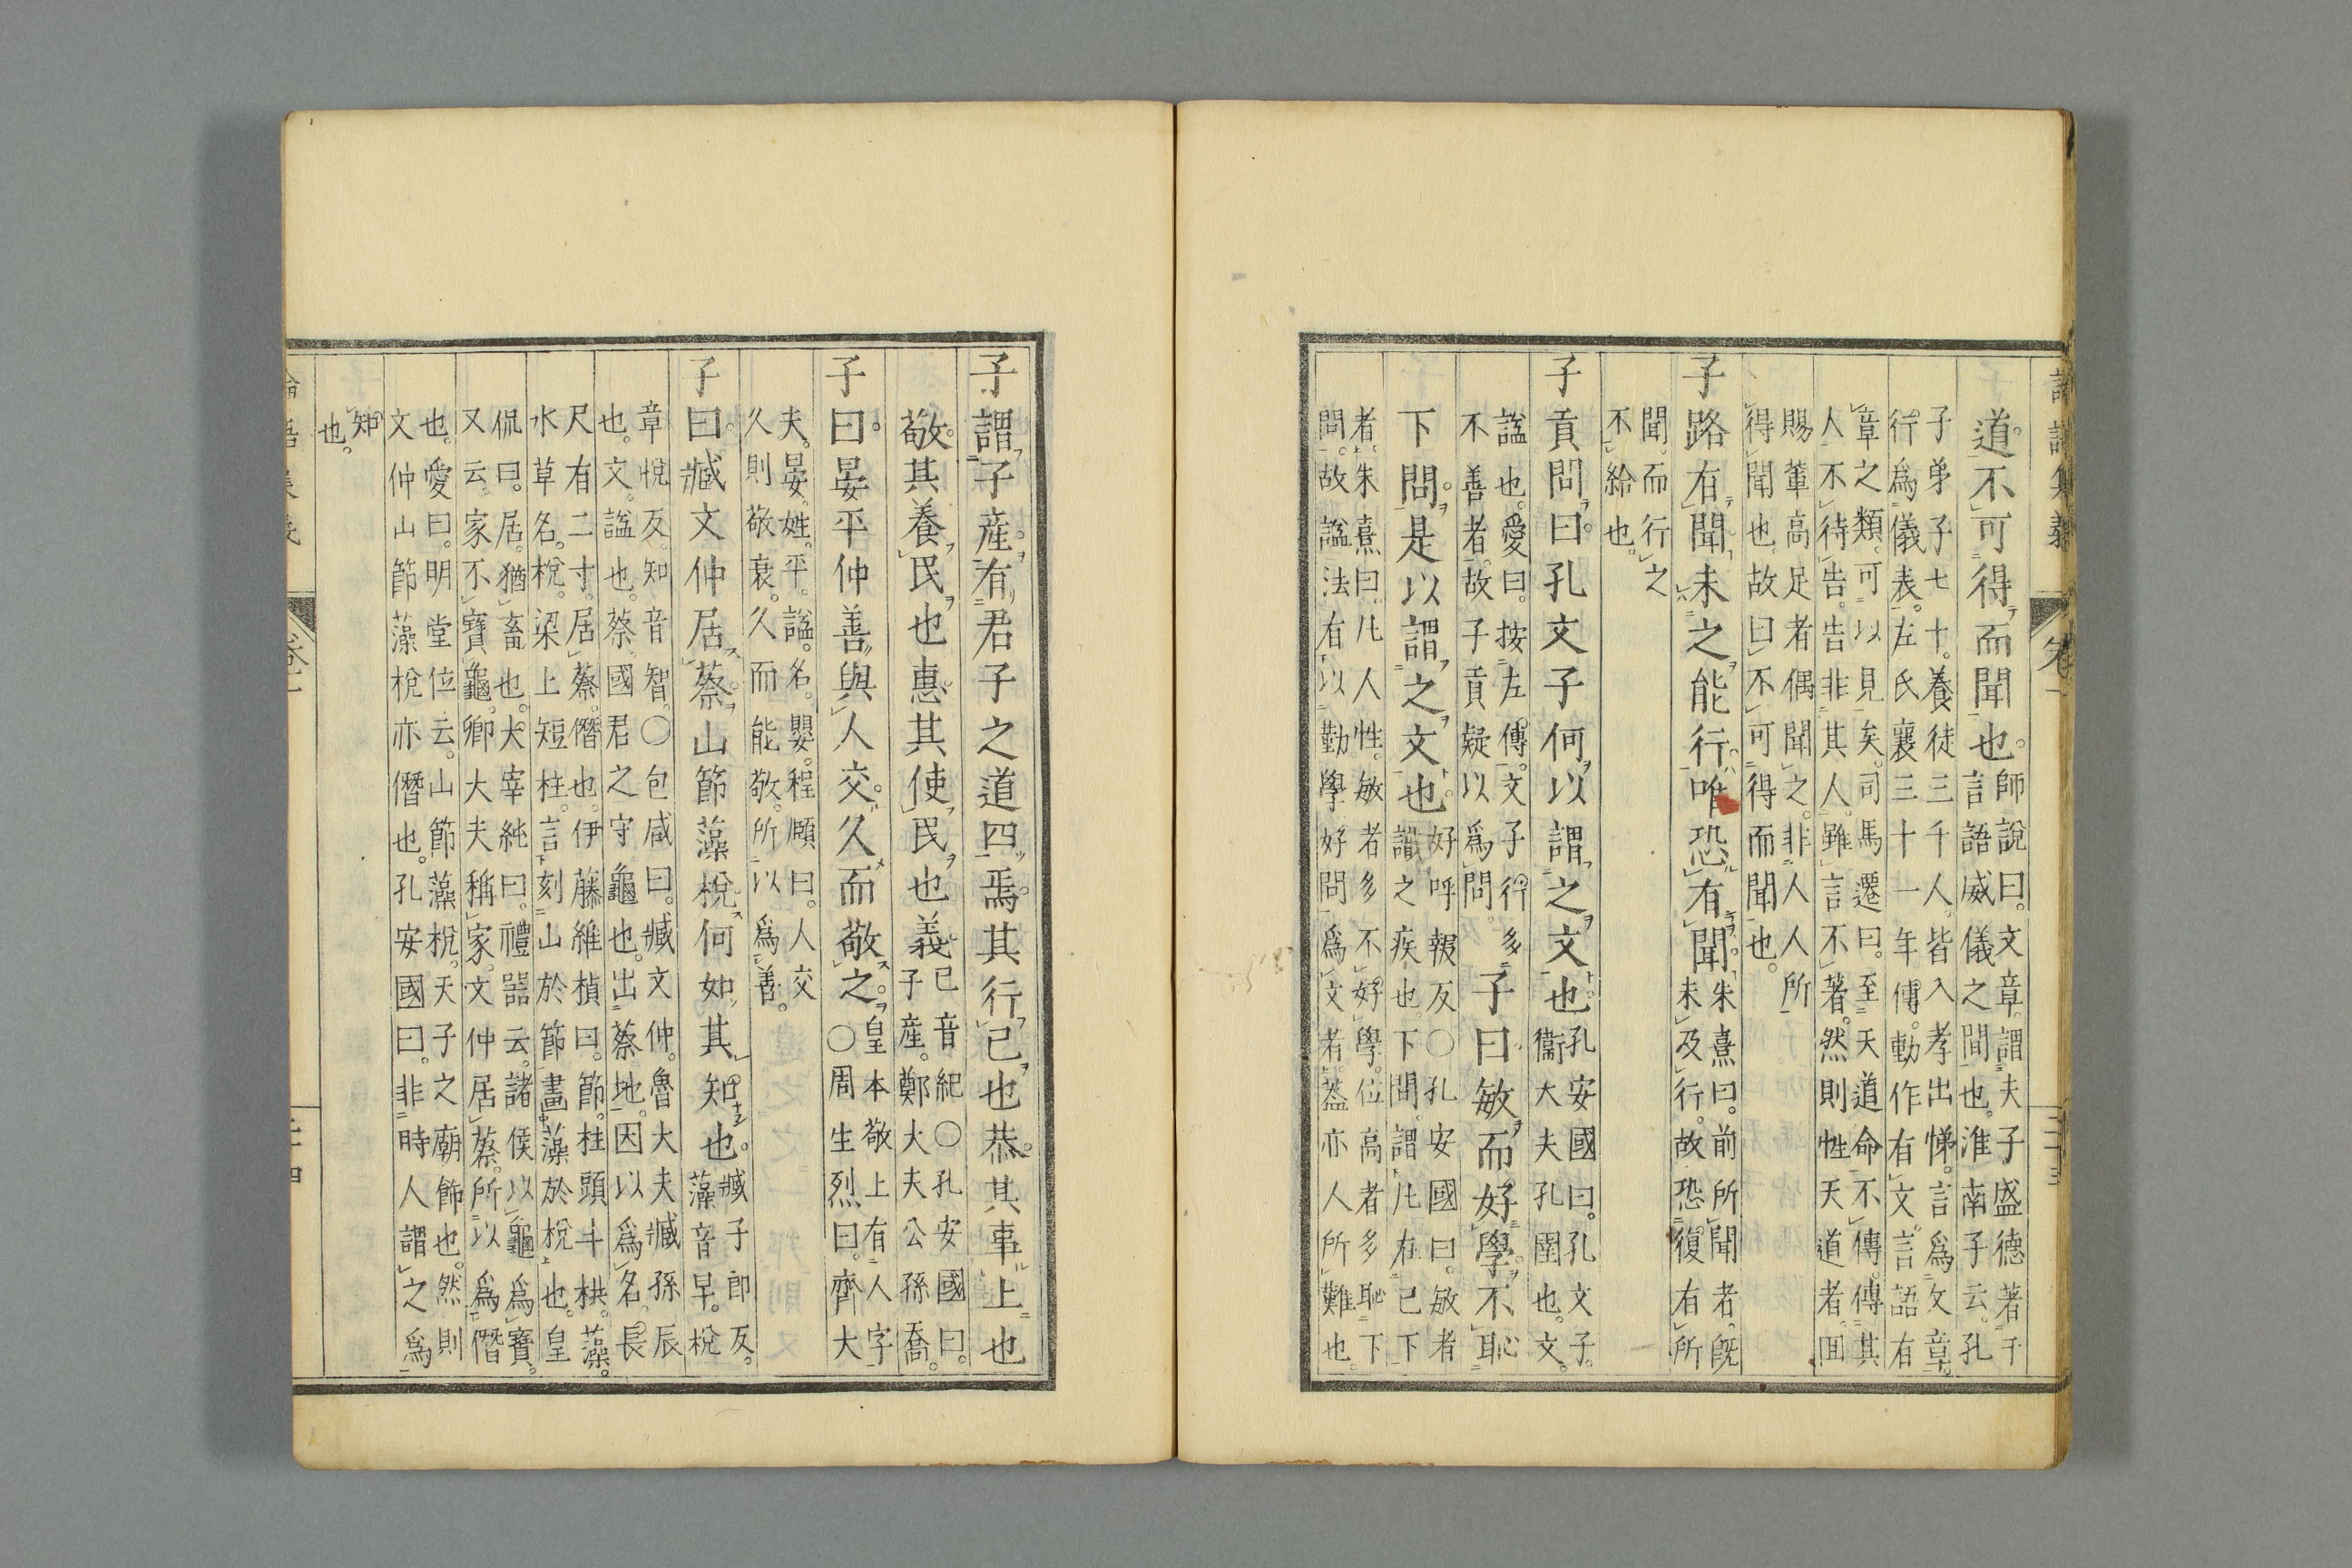 道不可得而聞也。
師說曰。文章。謂夫子盛德著于
言語威儀之間也。淮南子云。孔
子弟子七十。養徒三千人。皆入孝出悌。言爲文章。
行爲儀表。左氏襄三十一年傳。動作有文言語有
章之類。可以見矣。司馬遷曰。至天道命。不傳。傳其
人不待告。告非其人。雖言不著。然則性天道者。固
賜輩高足者偶聞之。非人人所
得聞也。故曰不可得而聞也。
子路有聞未之能行。唯恐有聞。
朱熹曰。前所聞者。既
未及行。故恐復有所
聞。而行之
不給也。
子貢問曰。孔文子何以謂之文也。
孔安國曰。孔文子。
衞大夫孔圉也。文。
諡也。愛曰。按左傳。文子行多
不善者。故子貢疑以爲問。
子曰敏而好學。不恥
下問。是以謂之文也。
好呼報反〇孔安國曰。敏者
識之疾也。下問。謂凡在己下
者。朱熹曰。凡人性。敏者多不好學。位高者多恥下
問。故諡法有以勤學好問爲文者。蓋亦人所難也。
子謂子産。有君子之道四焉。其行己也恭。其事上也
敬。其養民也惠。其使民也義。
己音紀〇孔安國曰。
子産。鄭大夫公孫喬。
子曰。晏平仲善與人交。久而敬之。
皇本敬上有人字
〇周生烈曰。齊大
夫。晏。姓。平。諡。名。嬰。程頤曰。人交
久則敬衰。久而能敬。所以爲善。
子曰。臧文仲居蔡。山節藻梲。何如其知也。
臧子郎反。
藻音早。梲
章悅反。知音智。〇包咸曰。臧文仲。魯大夫臧孫辰
也。文。諡也。蔡。國君之守龜也。出蔡地。因以爲名。長
尺有二寸。居蔡。僭也。伊藤維楨曰。節。柱頭斗栱。藻。
水草名。梲。梁上短柱。言刻山於節。畫藻於梲也。皇
侃曰。居。猶畜也。太宰純曰。禮器云。諸侯以龜爲寶。
又云。家不寶龜。卿大夫稱家。文仲居蔡。所以爲僭
也。愛曰。明堂位云。山節藻梲。天子之廟飾也。然則
文仲山節藻梲亦僭也。孔安國曰。非時人謂之爲
知
也。